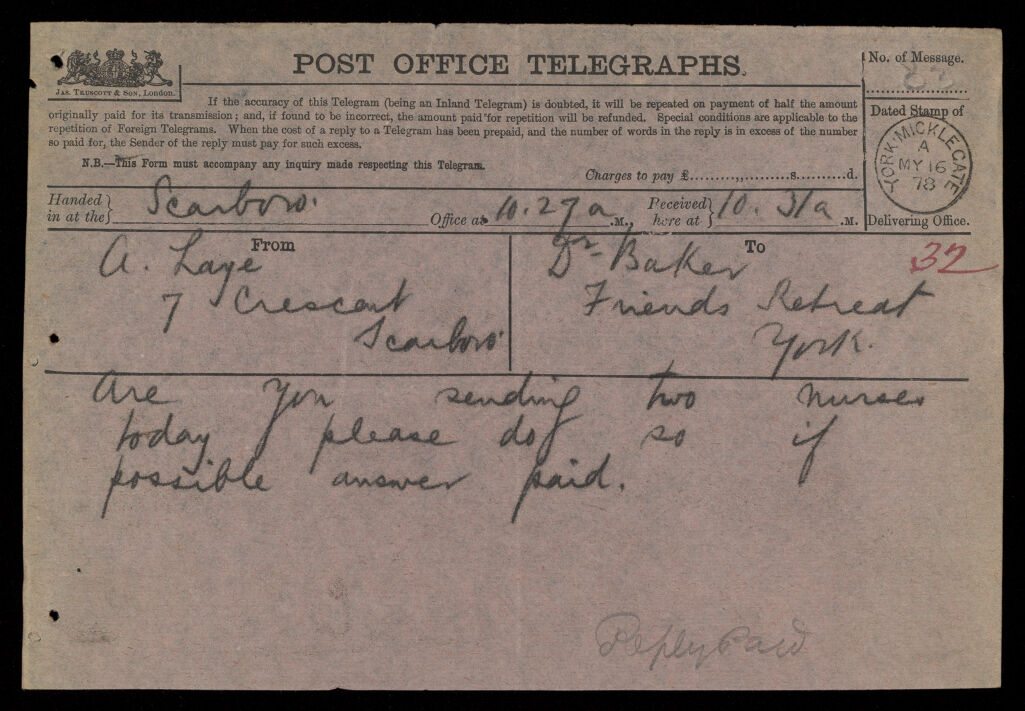 POST OFFICE TELEGRAPHS.
JAS. TRUSCOTT & SON, London.
If the accuracy of this Telegram (being an Inland Telegram) is doubted, it will be repeated on payment of half the amount
originally paid for its transmission; and, if found to be incorrect, the amount paid for repetition will be refunded. Special conditions are applicable to the
repetition of Foreign Telegrams. When the cost of a reply to a Telegram has been prepaid, and the number of words in the reply is in excess of the number
so paid for, the Sender of the reply must pay for such excess.
N.B.—This Form must accompany any inquiry made respecting this Telegram.
Charges to pay £..........,,..........s..........d.
No. of Message.
Dated Stamp of
YORK MICKLEGATE
A
MY 16
78
Delivering Office.
Handed in at the } Scarboro. Office at 10.27 a .M., Received here at } 10.31 a .M.
From
A. Laye
7 Crescent
Scarboro
To
32
Dr Baker
Friends Retreat
York.
Are you sending two nurses
today please do so if
possible answer paid.
Reply Paid